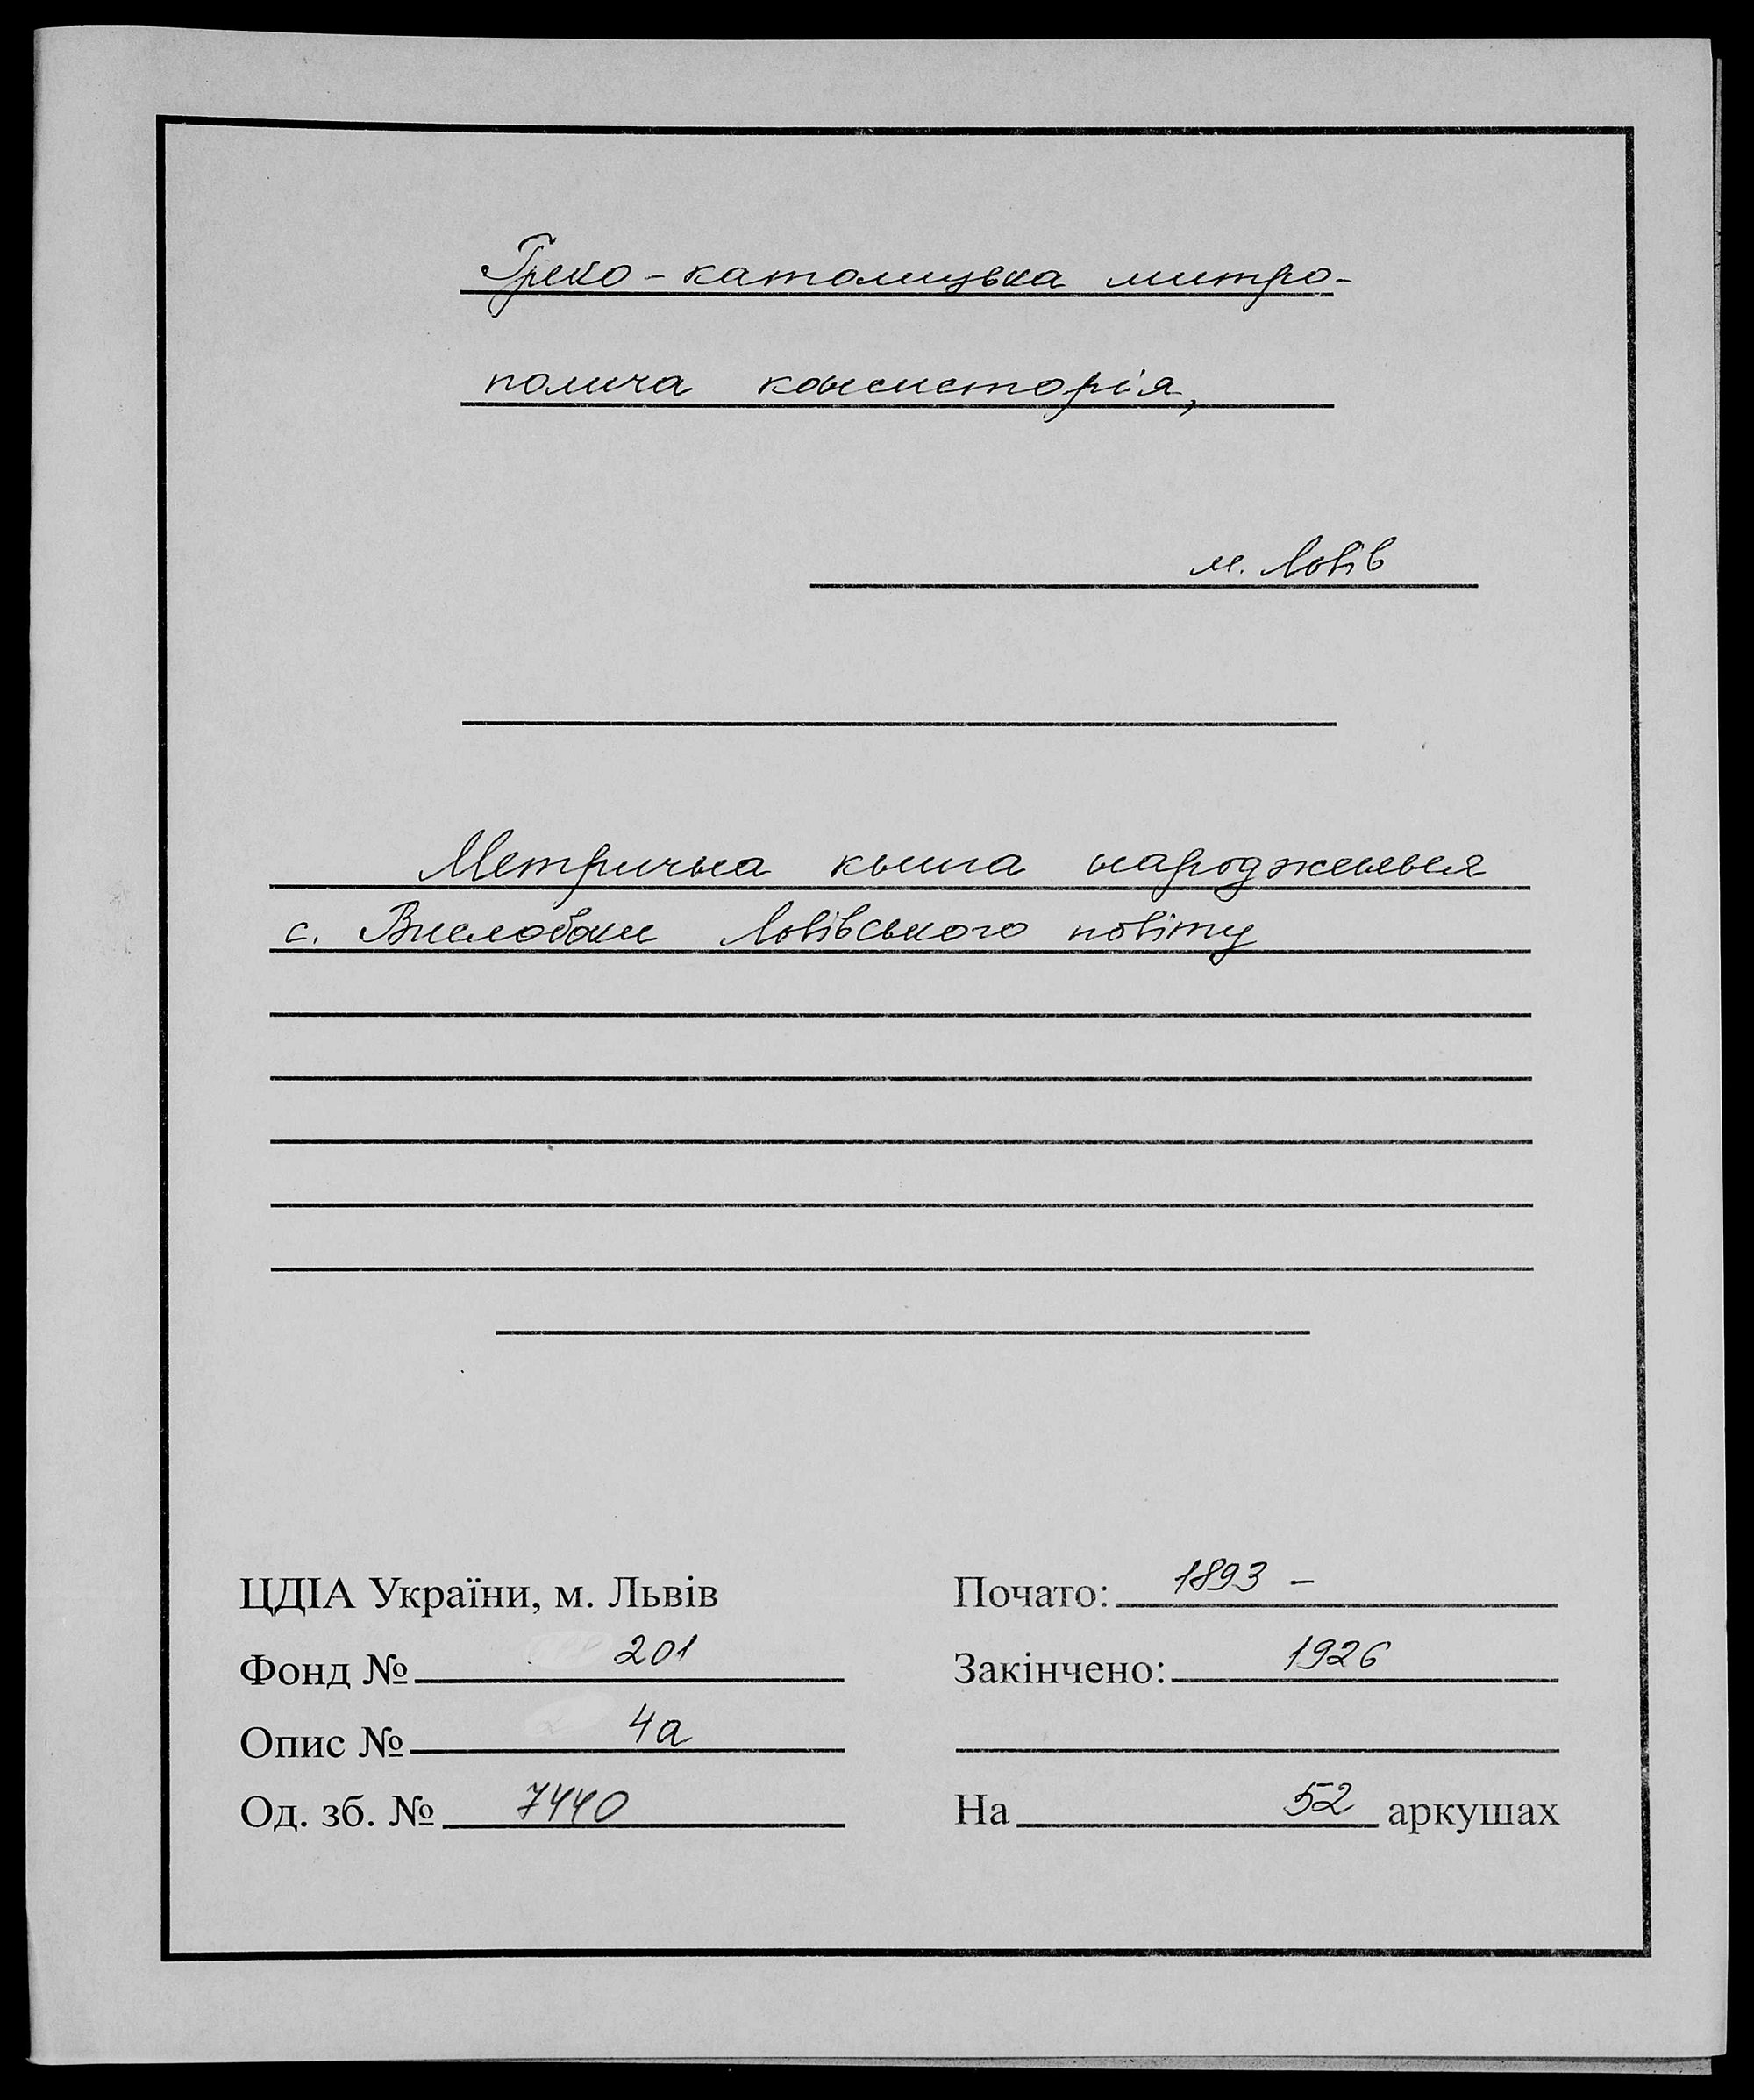 Греко-католицька митро-
полича консисторія,
м. Львів
Метрична книга народження
с. Вислобоки Львівського повіту
ЦДІА України, м. Львів
Почато: 1893 –
Фонд № 201
Закінчено: 1926
Опис № 4а
Од. зб. № 7440
На 52 аркушах